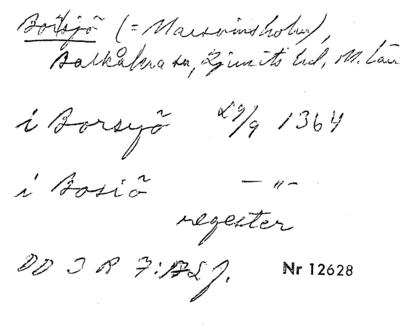 Bosjö (= Marsvinsholm),
Balkåkra sn, Ljunits hd, M. län
i Borsyö 29/9 1364
i Bosiö — " —
regester
DD 3 R 7: Nr 12628